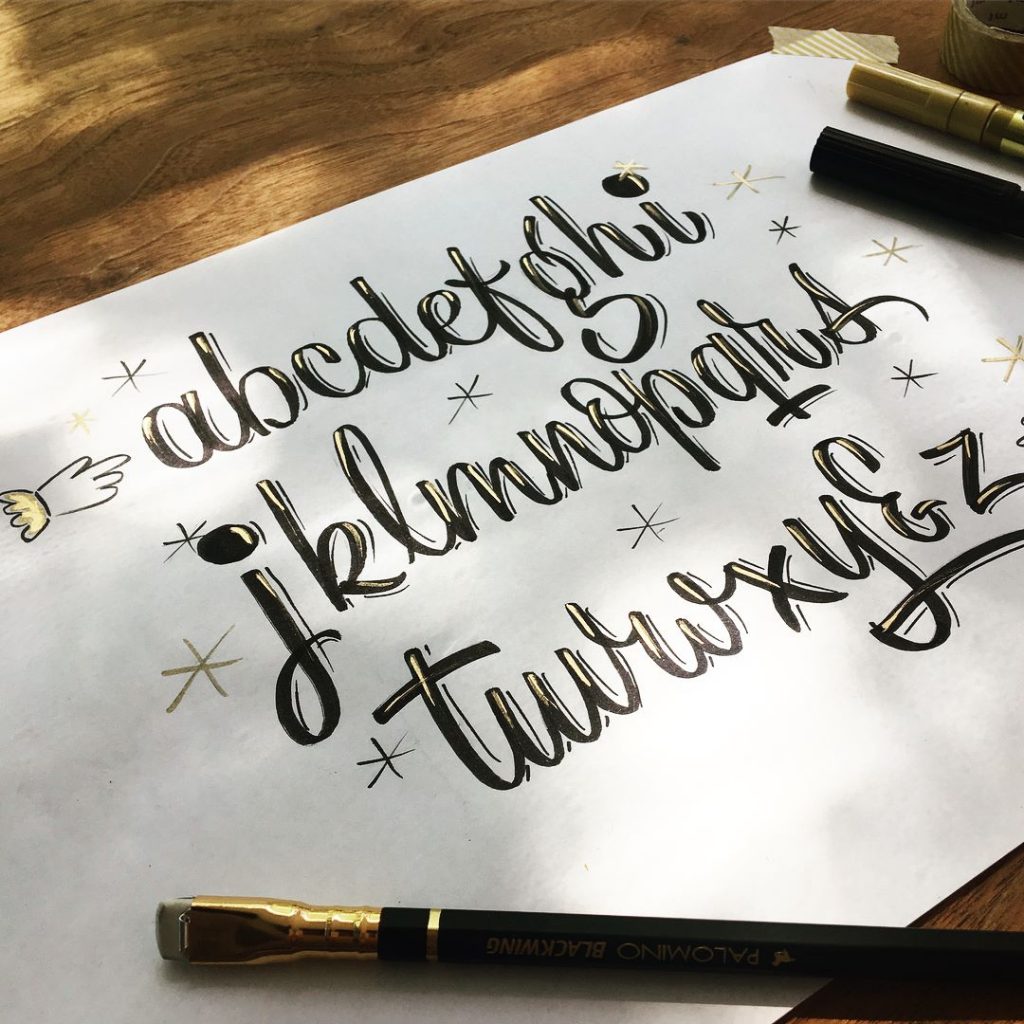 abcdefghi
jklmnopqrs
tuvwxy&z
PALOMINO BLACKWING